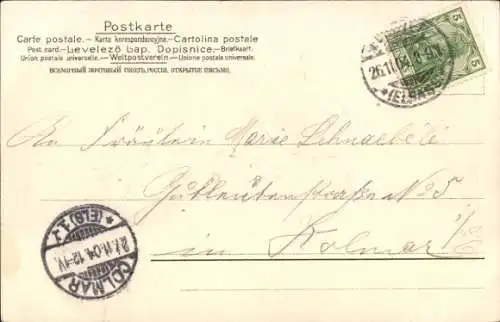 Postkarte
Carte postale. – Karta korespondencyjna. – Cartolina postale
Post card. – Levelező Lap. Dopisnice. – Briefkaart.
Union postale universelle. – Weltpostverein – Unione postale universale.
ВСЕМІРНЫЙ ПОЧТОВЫЙ СОЮЗЪ, РОССІЯ, ОТКРЫТОЕ ПИСЬМО.
5 5
26.11.04
(ELS)
An Fräulein Marie Schnaebélé
Gutleutenstraße No 5
in Kolmar i/E
COLMAR
27.11.04. 12-1V.
* (ELS) 1 *